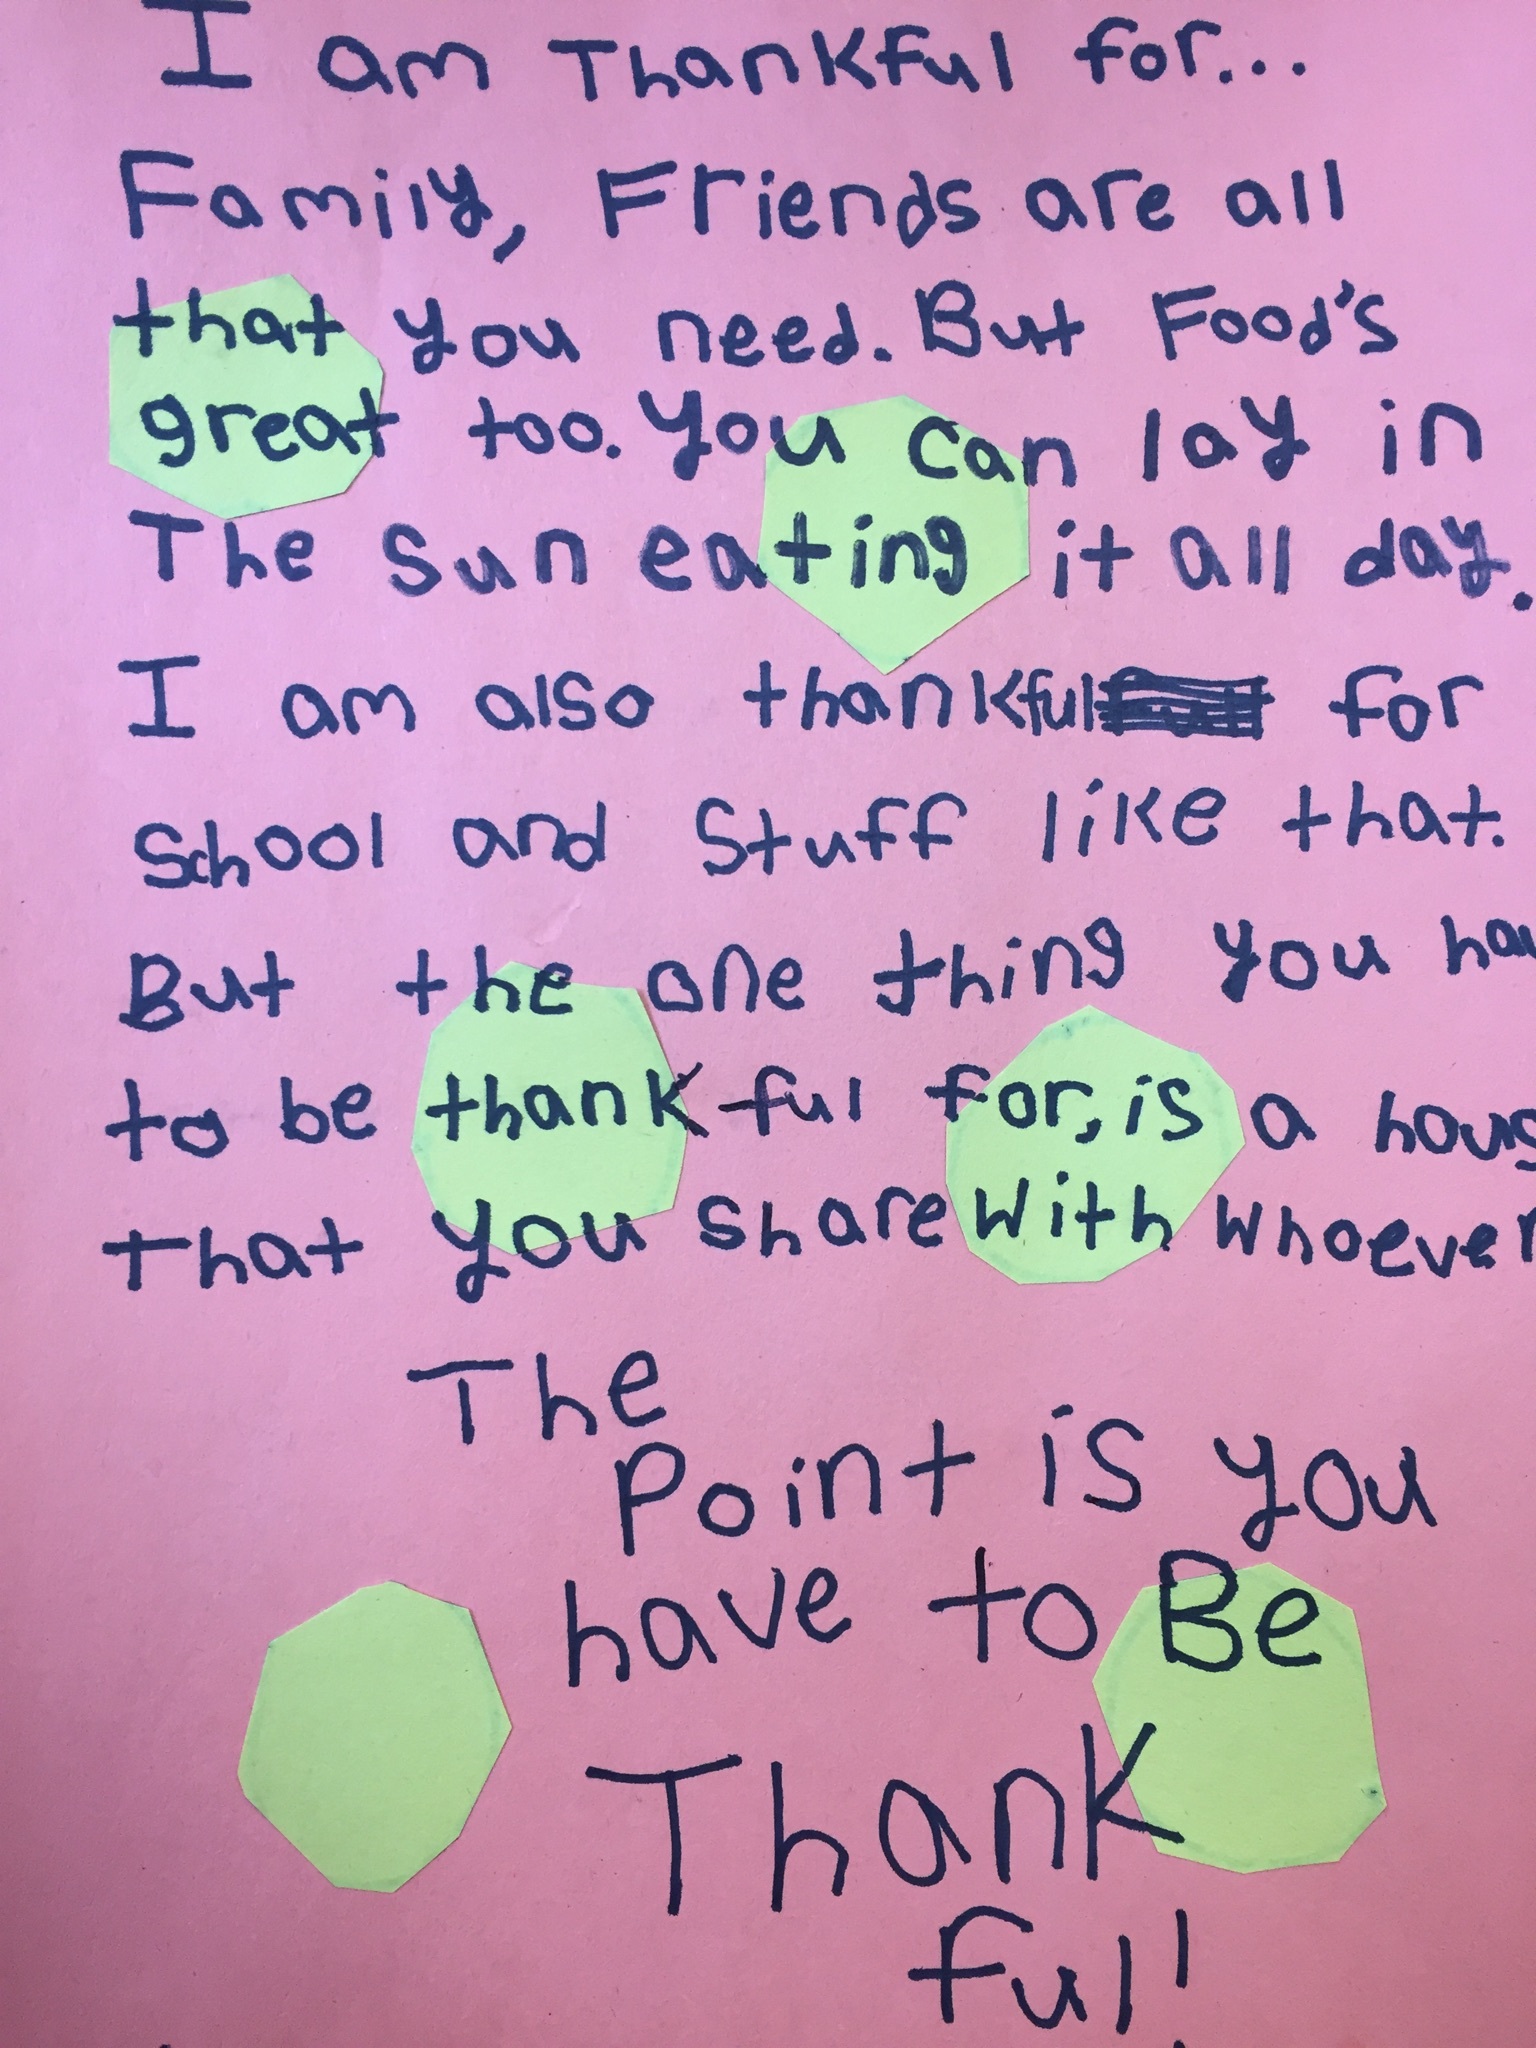 I am Thankful for...
Family, Friends are all
that you need. But Food's
great too. You can lay in
The Sun eating it all day.
I am also thankful for
School and Stuff like that.
But the one thing you hav
to be thankful for, is a hous
that you share with whoever
The
Point is you
have to Be
Thank
ful!